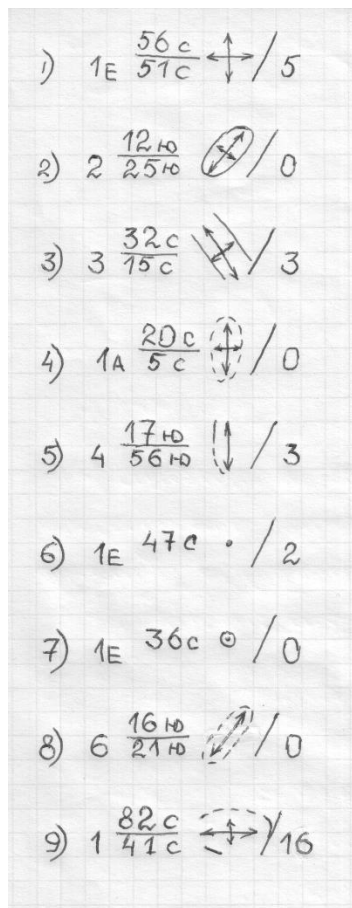 1) 1Е 56 с / 51 с / 5
2) 2 12 ю / 25 ю / 0
3) 3 32 с / 15 с / 3
4) 1А 20 с / 5 с / 0
5) 4 17 ю / 56 ю / 3
6) 1Е 47 с · / 2
7) 1Е 36 с ⊙ / 0
8) 6 16 ю / 21 ю / 0
9) 1 82 с / 41 с / 16